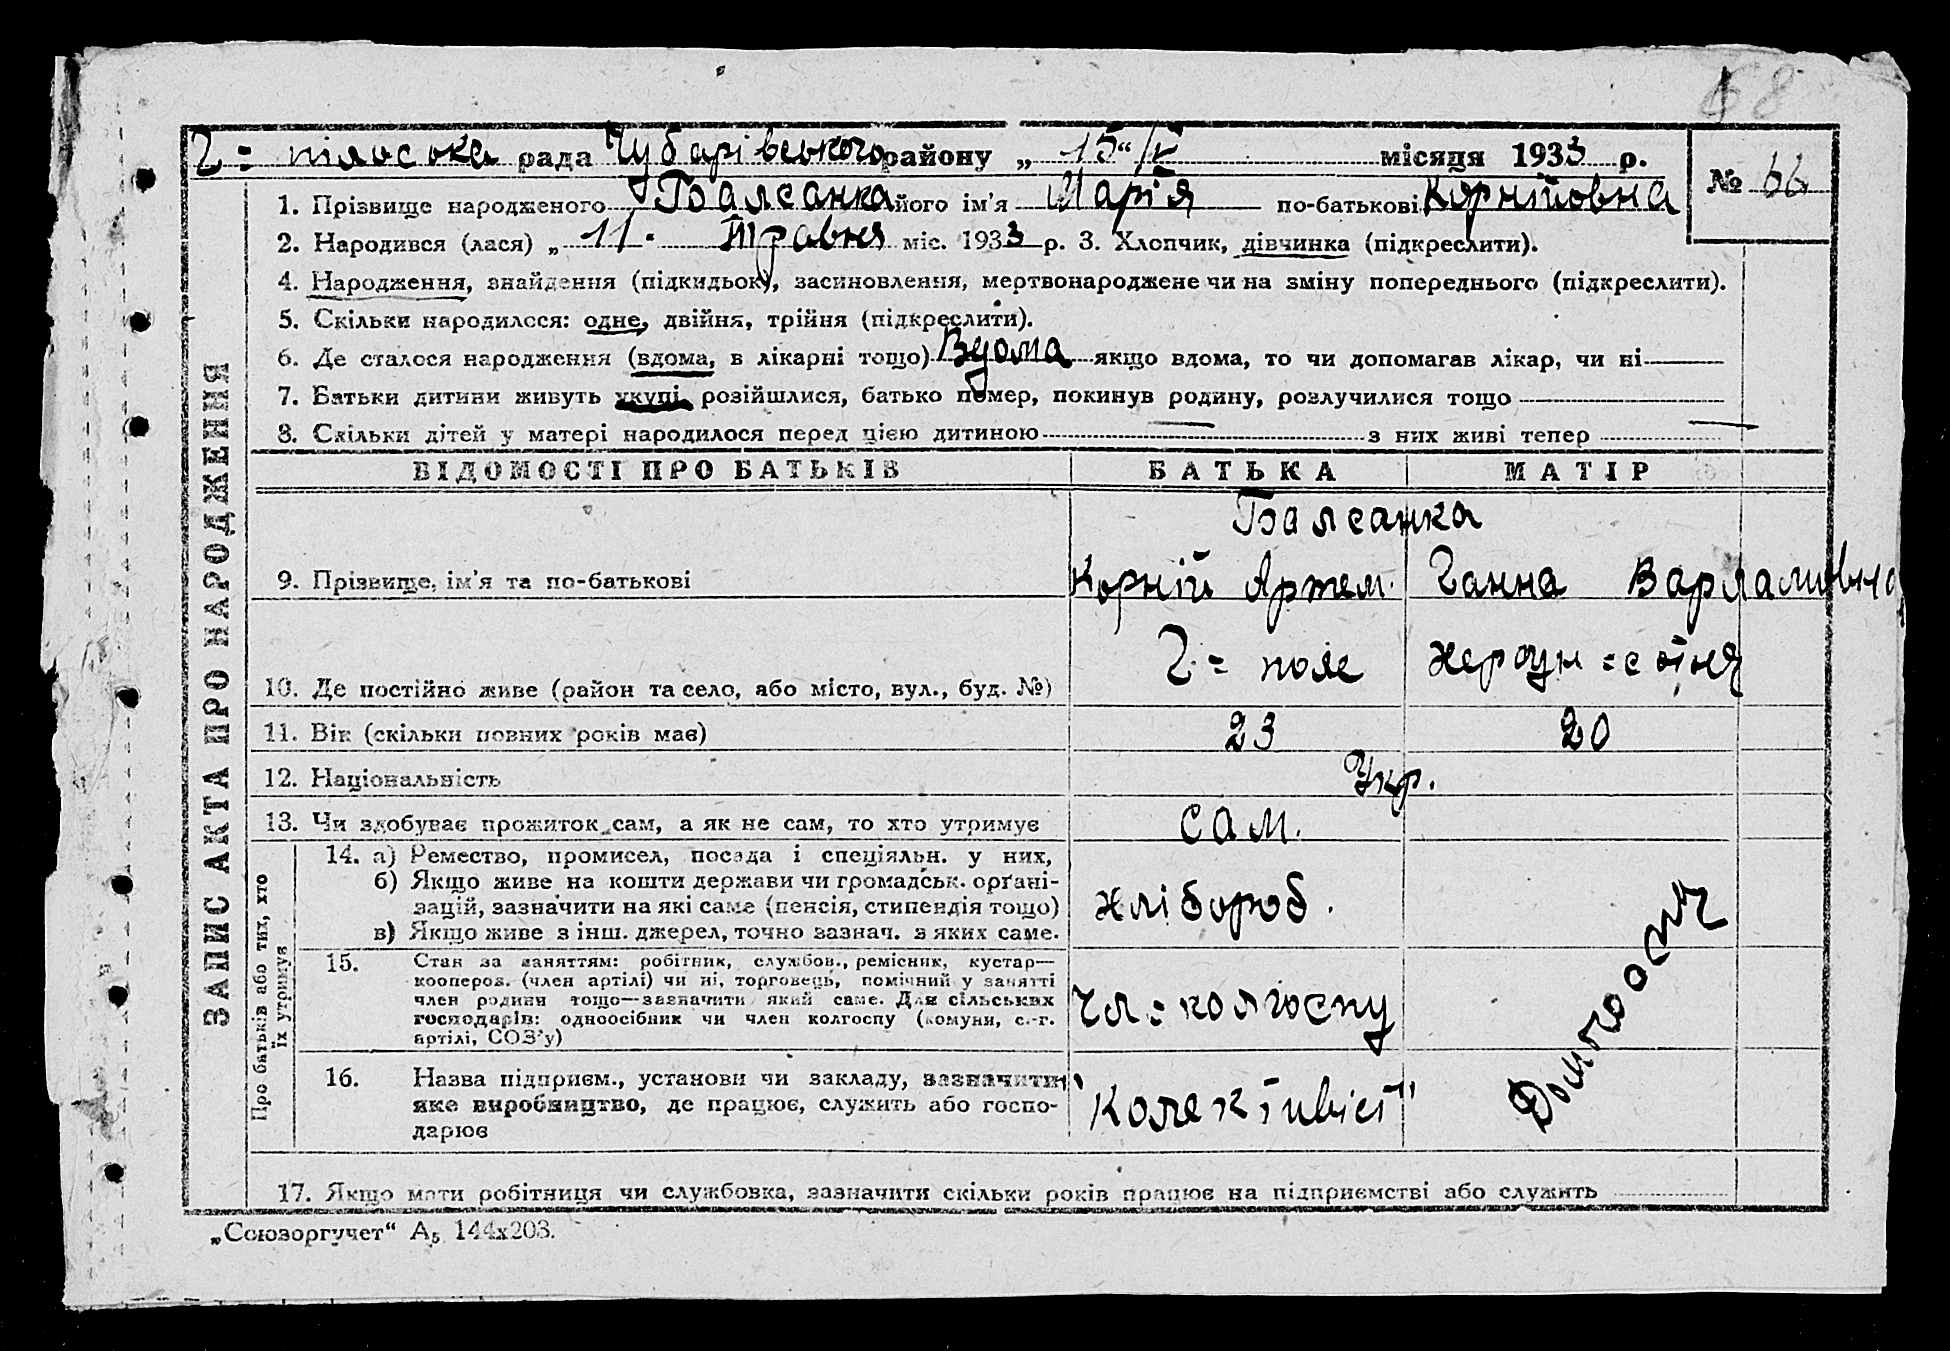 68
Г= пільська рада Чубарівського району „ 15“/V місяця 1933 р.
№ 66
1. Прізвище народженого Балсанка його ім'я Марія по-батькові Корнійовна
2. Народився (лася) „ 11. Травня міс. 1933 р. 3. Хлопчик, дівчинка (підкреслити).
4. Народження, знайдення (підкидьок), засиновлення, мертвонароджене чи на зміну попереднього (підкреслити).
5. Скільки народилося: одне, двійня, трійня (підкреслити).
6. Де сталося народження (вдома, в лікарні тощо) Вдома якщо вдома, то чи допомагав лікар, чи ні —
7. Батьки дитини живуть укупі, розійшлися, батько помер, покинув родину, розлучилися тощо —
8. Скільки дітей у матері народилося перед цією дитиною — з них живі тепер —
ЗАПИС АКТА ПРО НАРОДЖЕННЯ
ВІДОМОСТІ ПРО БАТЬКІВ БАТЬКА МАТІР
Балсанка
9. Прізвище, ім'я та по-батькові Корній Артем. Ганна Варламовна
10. Де постійно живе (район та село, або місто, вул., буд. №) Г= поле
11. Вік (скільки повних років має) 23 20
12. Національність Укр.
13. Чи здобуває прожиток сам, а як не сам, то хто утримує сам.
Про батьків або тих, хто їх утримує
14. а) Ремество, промисел, посада і спеціяльн. у них,
б) Якщо живе на кошти держави чи громадськ. орґані-
зацій, зазначити на які саме (пенсія, стипендія тощо) хлібороб.
в) Якщо живе з інш. джерел, точно зазнач. з яких саме.
15. Стан за заняттям: робітник, службов., ремісник, кустар—
коопероз. (член артілі) чи ні, торговець, помічний у занятті
член родини тощо—зазначити який саме. Для сільських
господарів: одноосібник чи член колгоспу (комуни, с.-г.
артілі, СОЗ'у) чл= колгоспу
16. Назва підприєм., установи чи закладу, зазначити
яке виробництво, де працює, служить або госпо-
дарює "Колектівіст"
Домгосп
17. Якщо мати робітниця чи службовка, зазначити скільки років працює на підприємстві або служить
„Союзоргучет“ А5 144х203.